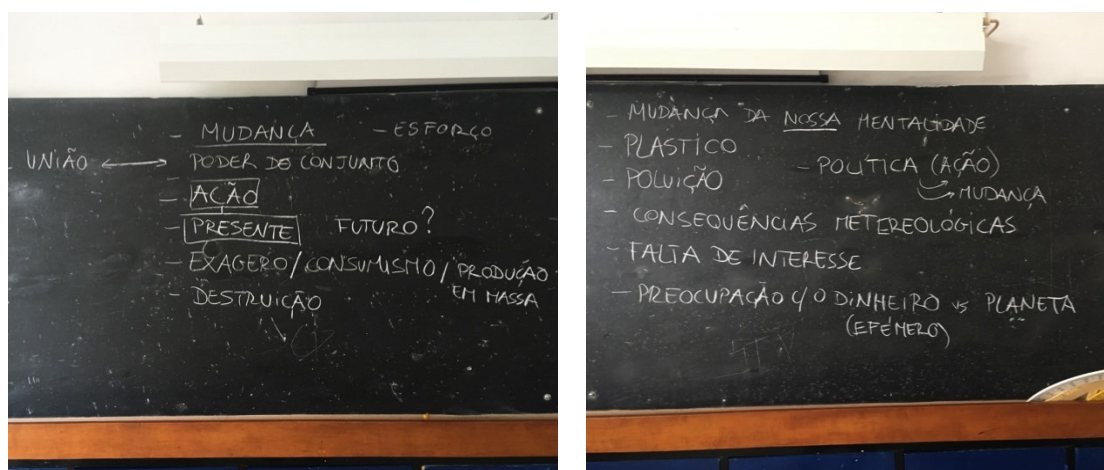 - MUDANÇA - ESFORÇO
UNIÃO ↔ PODER DO CONJUNTO
- AÇÃO
- PRESENTE FUTURO?
- EXAGERO/CONSUMISMO/PRODUÇÃO
EM MASSA
- DESTRUIÇÃO
- MUDANÇA DA NOSSA MENTALIDADE
- PLÁSTICO
- POLÍTICA (AÇÃO)
- POLUIÇÃO
→ MUDANÇA
- CONSEQUÊNCIAS METEREOLÓGICAS
- FALTA DE INTERESSE
- PREOCUPAÇÃO C/O DINHEIRO vs PLANETA
(EFÉMERO)